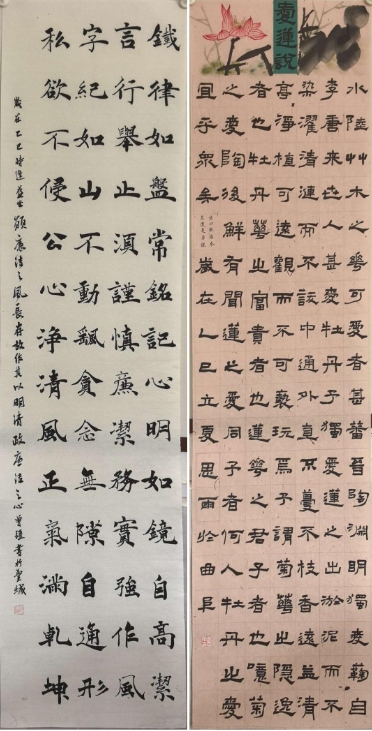 鐵律如盤常銘記心明如鏡自高潔
言行舉止須謹慎廉潔務實強作風
字紀如山不動飄貪念無隙自遁形
私欲不侵公心淨清風正氣滿乾坤
歲在乙巳時逢盛世願廉潔之風長存故作其以明清政廉潔之心曾書於聖城
愛蓮說
水陸艸木之華可愛者甚蕃晉陶淵明獨愛菊自
李唐来世人甚愛牡丹予獨愛蓮之出淤泥而不
染濯清漣而不妖中通外直不蔓不枝香遠益清
亭淨植可遠觀而不可褻玩焉予謂菊華之隱逸
者也牡丹華之富貴者也蓮華之君子者也噫菊
之愛陶後鮮有聞蓮之愛同予者何人牡丹之愛
宜乎衆矣歲在乙巳立夏思雨於曲阜